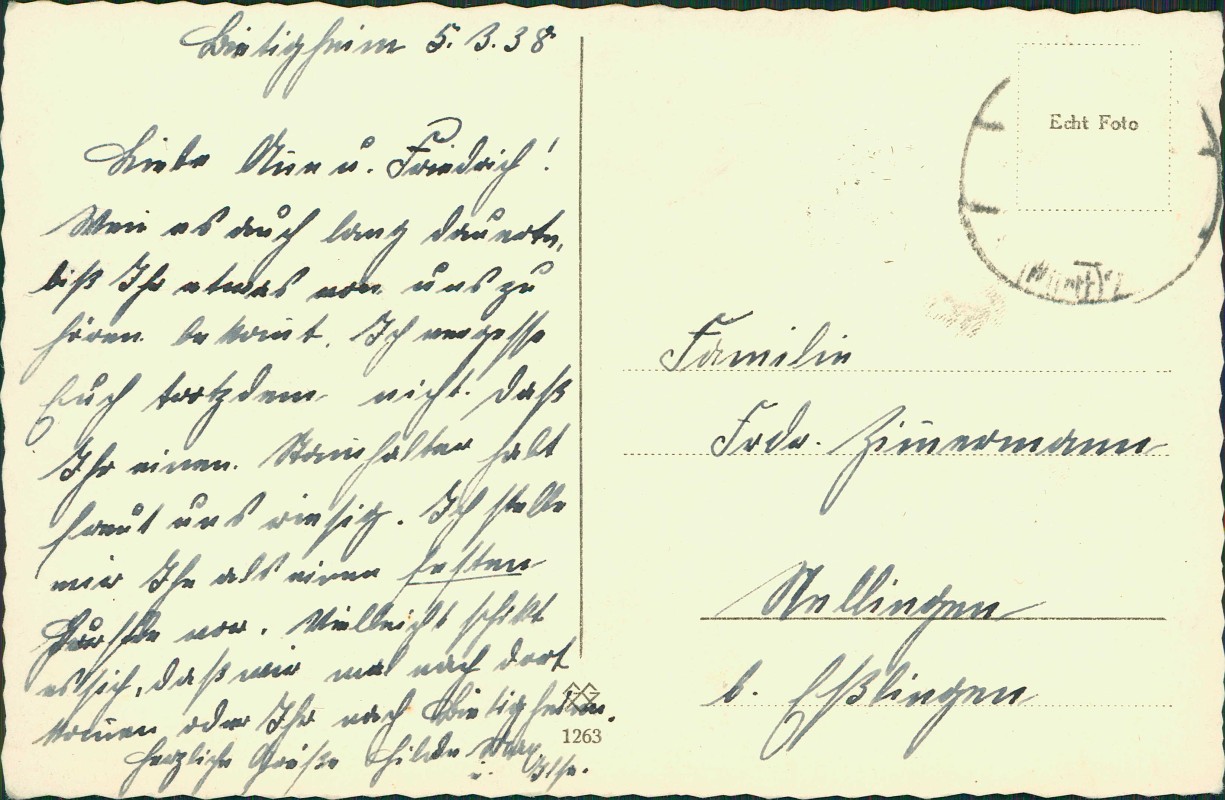 Bietigheim 5.3.38
Liebe Anne u. Friedrich!
Wenn es auch lang dauerte,
biß Ihr etwas von uns zu
hören bekommt. Ich vergesse
Euch trotzdem nicht. Daß
Ihr einen Stammhalter habt
freut uns riesig. Ich stelle
mir Ihn als einen festen
vor. Vielleicht schikt
es sich, daß wir mal nach dort
kommen oder Ihr nach Bietigheim.
Herzliche Grüße Hilde
u. Ilse.
1263
Echt Foto
Familie
Frdr. Zimmermann
Nellingen
b. Eßlingen